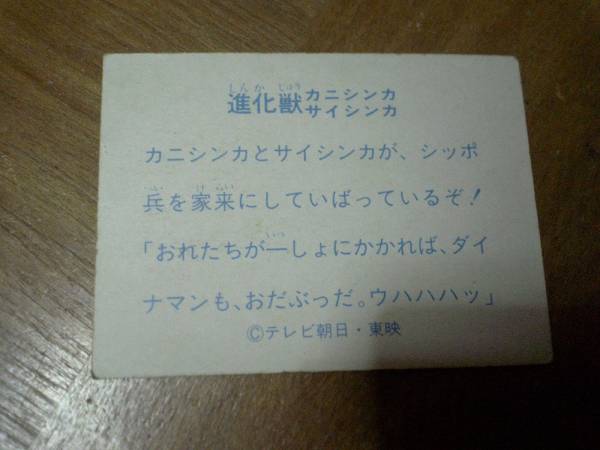 進化獣カニシンカ
サイシンカ
カニシンカとサイシンカが、シッポ
兵を家来にしていばっているぞ!
「おれたちが一しょにかかれば、ダイ
ナマンも、おだぶっだ。ウハハハッ」
©テレビ朝日・東映